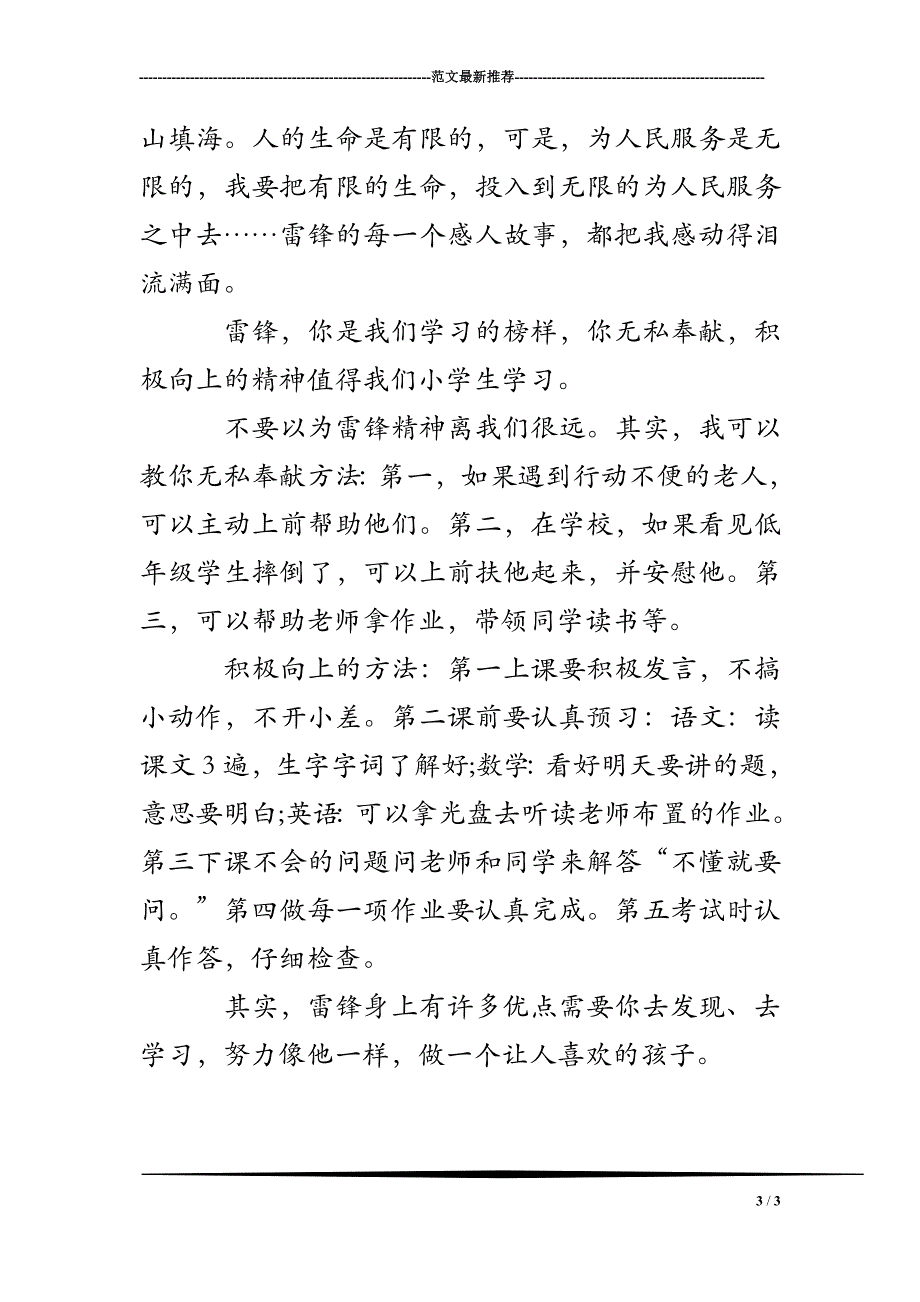 ---------------------------------------------------------------范文最新推荐------------------------------------------------------
山填海。人的生命是有限的，可是，为人民服务是无
限的，我要把有限的生命，投入到无限的为人民服务
之中去⋯⋯雷锋的每一个感人故事，都把我感动得泪
流满面。
雷锋，你是我们学习的榜样，你无私奉献，积
极向上的精神值得我们小学生学习。
不要以为雷锋精神离我们很远。其实，我可以
教你无私奉献方法：第一，如果遇到行动不便的老人，
可以主动上前帮助他们。第二，在学校，如果看见低
年级学生摔倒了，可以上前扶他起来，并安慰他。第
三，可以帮助老师拿作业，带领同学读书等。
积极向上的方法：第一上课要积极发言，不搞
小动作，不开小差。第二课前要认真预习：语文：读
课文3遍，生字字词了解好;数学：看好明天要讲的题，
意思要明白;英语：可以拿光盘去听读老师布置的作业。
第三下课不会的问题问老师和同学来解答“不懂就要
问。”第四做每一项作业要认真完成。第五考试时认
真作答，仔细检查。
其实，雷锋身上有许多优点需要你去发现、去
学习，努力像他一样，做一个让人喜欢的孩子。
3 / 3